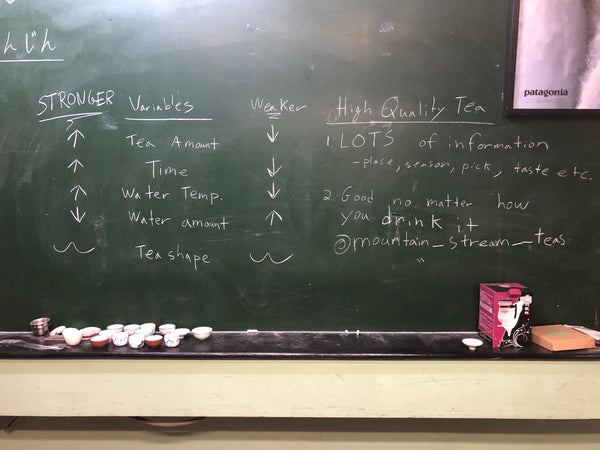 んじん
STRONGER Variables Weaker
↑ Tea Amount ↓
↑ Time ↓
↑ Water Temp. ↓
↓ Water amount ↑
Tea shape
High Quality Tea
1. LOTS of information
- place, season, pick, taste etc.
2. Good no matter how
you drink it
@mountain_stream_teas
patagonia